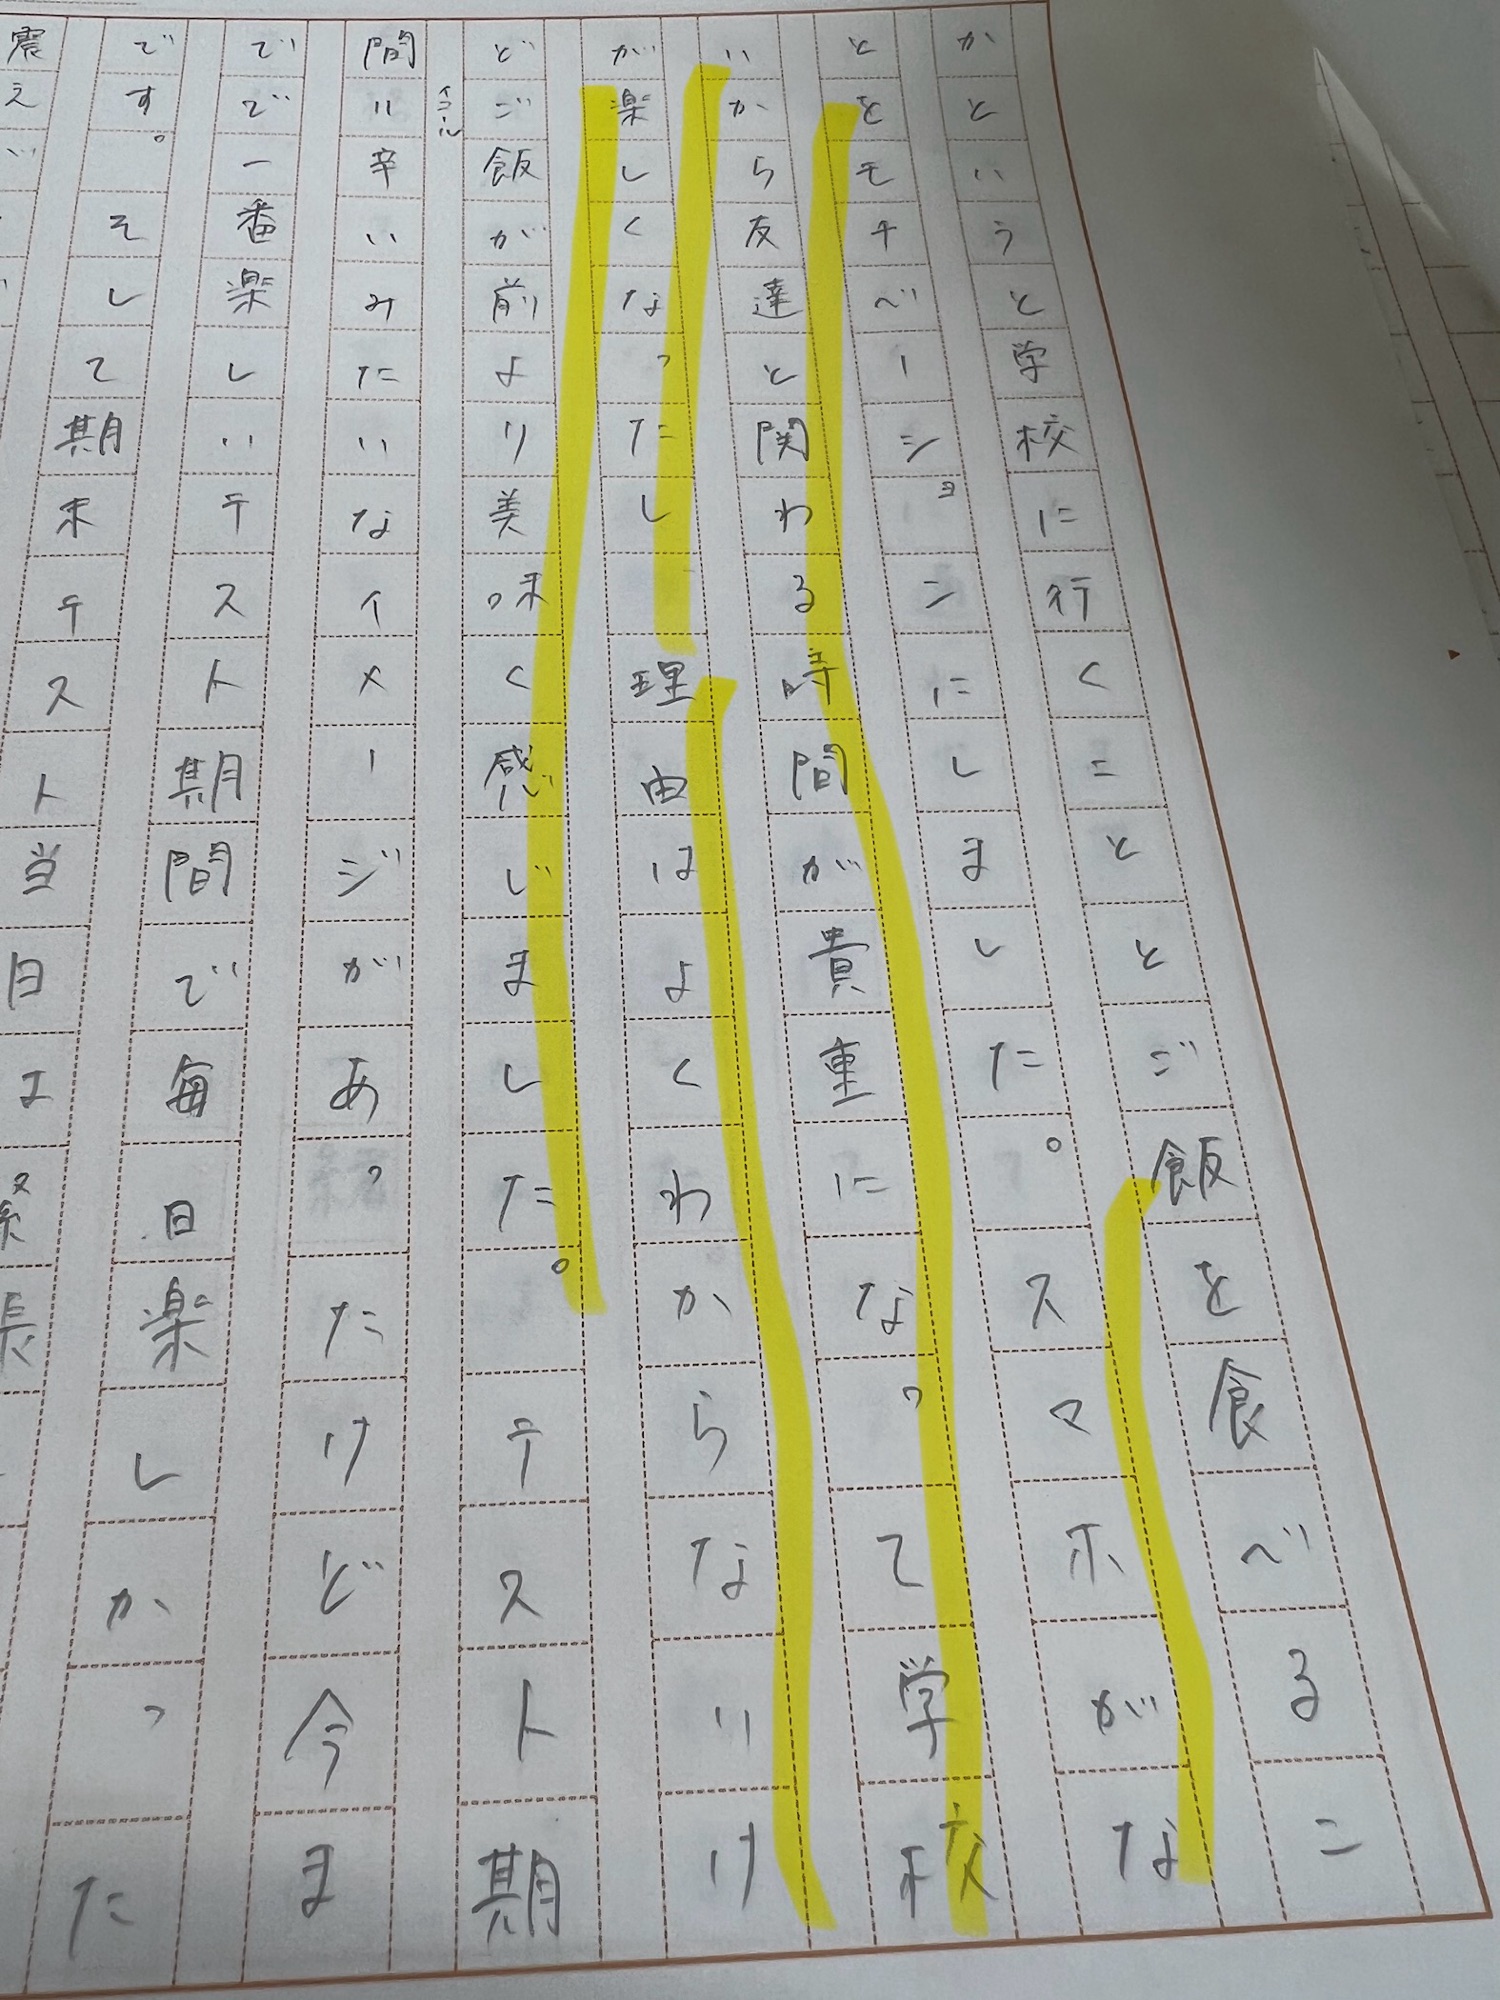 かというと学校に行くこととご飯を食べるこ
とをモチベーションにしました。スマホがな
いから友達と関わる時間が貴重になって学校
が楽しくなったし理由はよくわからないけ
どご飯が前より美味く感じました。テスト期
イコール
間=辛いみたいなイメージがあったけど今ま
でで一番楽しいテスト期間で毎日楽しかった
です。そして期末テスト当日は緊張
震え